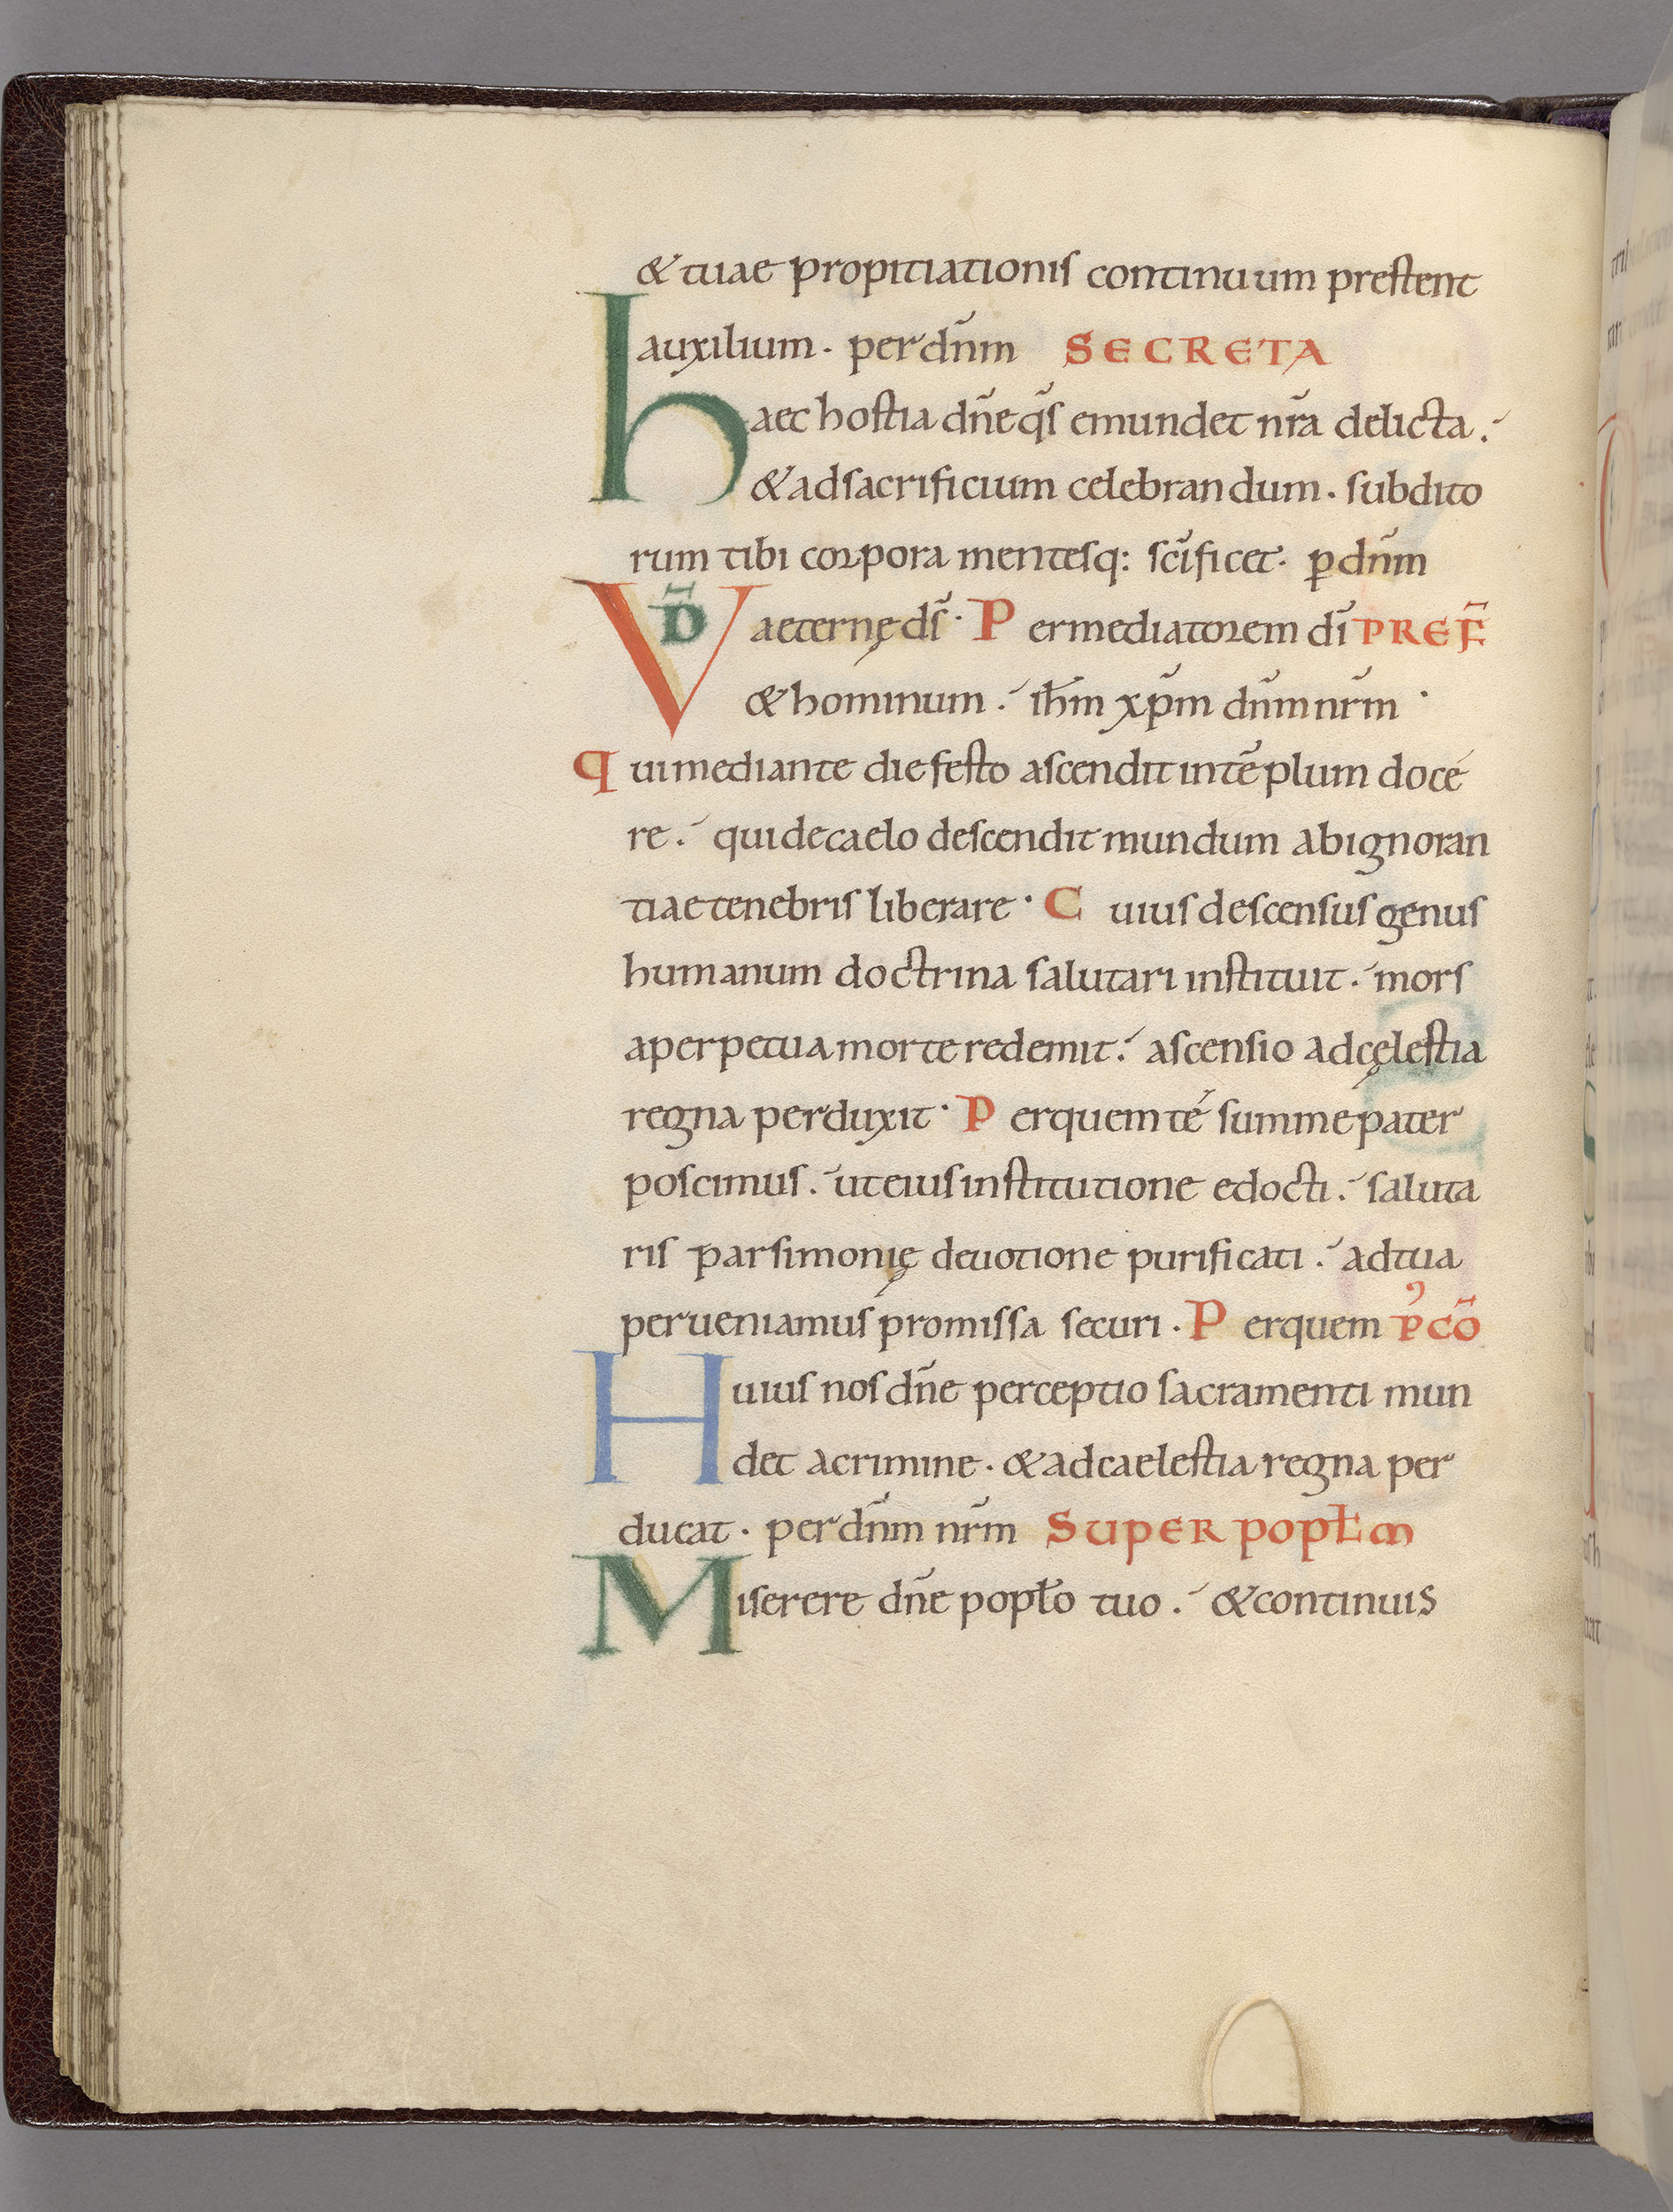 & tuae propitiationis continuum prestent
auxilium · per dñm SECRETA
haec hostia dñe q̃s emundet nr̃a delicta ·
& ad sacrificium celebrandum · subdito
rum tibi corpora mentesq: sc̃ificet · ꝑ dñm
VD̃ aeternę ds̃ · Per mediatorem dĩ PREF̃
& hominum · ih̃m xp̃m dñm nr̃m ·
qui mediante die festo ascendit in tẽplum docé
re · qui de caelo descendit mundum ab ignoran
tiae tenebris liberare · Cuius descensus genus
humanum doctrina salutari instituit · mors
a perpetua morte redemit · ascensio ad cęlestia
regna perduxit · Per quem té summe pater
poscimus · ut eius institutione edocti · saluta
ris parsimonię deuotione purificati · ad tua
perueniamus promissa securi · Per quem P'CÕ
Huius nos dñe perceptio sacramenti mun
det a crimine · & ad caelestia regna per
ducat · per dñm nr̃m SUPER POPŁM
Miserere dñe popło tuo · & continuis